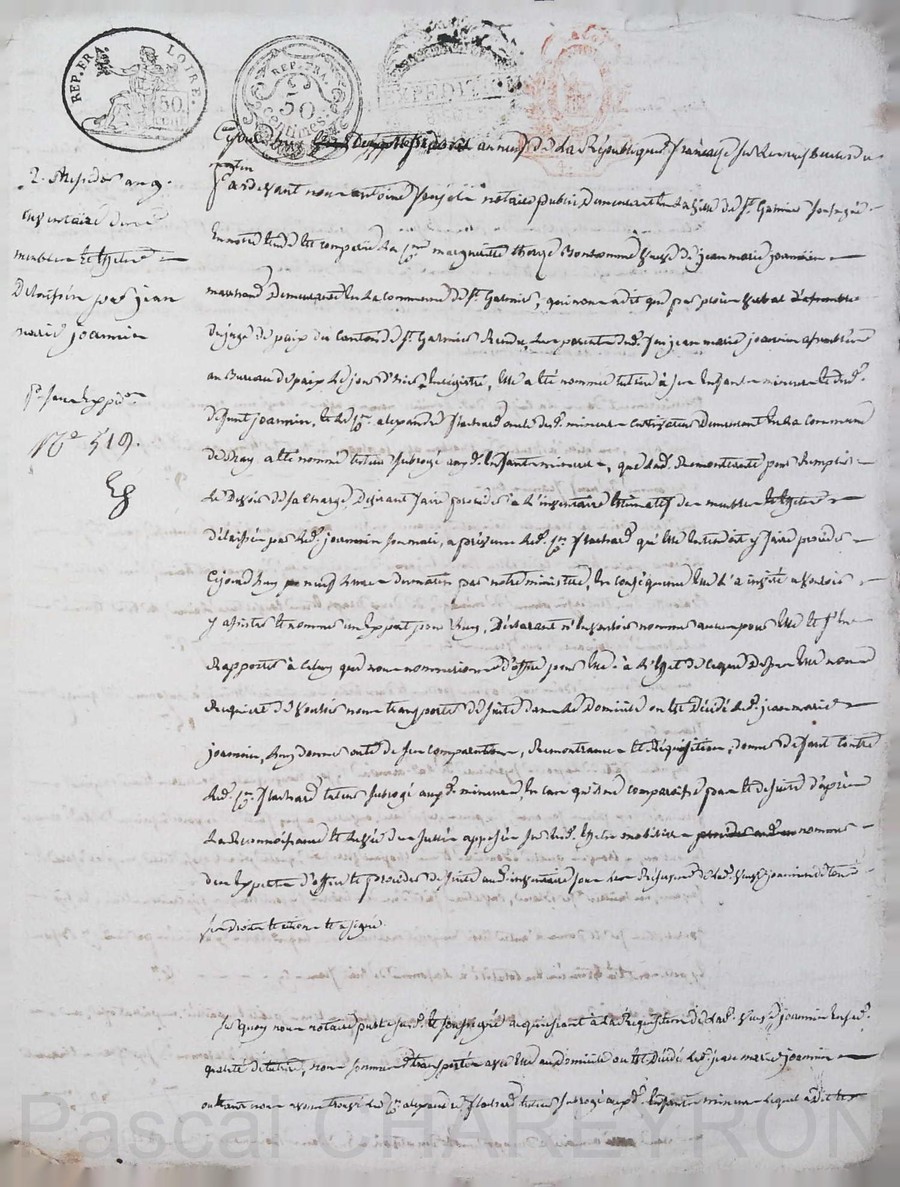 REP. FRA. LOIRE.
50
REP. FRA.
50
centimes
EXPEDITION
Cejourd'huy an neuf de la République française sur les neuf heures du
matin
Pardevant nous antoine notaire public demeurant en la ville de St. Galmier soussigné
2. an 9.
inventaire des
meubles et effets
Delaissés par jean
marie joannin
No. 519.
Est comparue la marguerite Bonhomme veuve de jean marie joannin
marchand Demeurant en la commune de St. Galmier, qui nous a dit que par procès verbal d'assemblée
du juge de paix du canton de St. Galmier Rendu, les parents dud. feu jean marie joannin assemblés
au Bureau de paix le jour d'hier, Enregistré, Elle a été nommée tutrice à ses Enfants mineurs et dud.
defunt joannin, et le alexandre flachard oncle des d. mineurs cultivateur Demeurant en la commune
de a été nommé tuteur subrogé auxd. Enfants mineurs, que lad. Remontrante pour Remplir
le Devoir de sa charge, Desirant faire procéder à l'inventaire estimatif des meubles et effets
délaissés par led. joannin son mari, a prévenu led. flachard qu'elle Entendoit y faire procéder
Cejourd'huy neuf heures du matin par notre ministère, En conséquence Elle l'a invité à vouloir
y assister et nommer un Expert pour Eux, Déclarant n'en vouloir nommer aucun pour Elle et s'en
Rapporter à celuy que nous nommerions d'office pour Elle. à l'Effet de ce que Dessus Elle nous
Requiert de vouloir nous transporter de suite dans le Domicile où est décédé led. jean marie
joannin, luy donner acte de ses comparution, Remontrance et Réquisition, donner défaut contre
led. flachard tuteur subrogé auxd. mineurs, En cas qu'il ne comparaisse pas et de suite d'après
la Reconnoissance et levée des scellés apposés sur lesd. effets mobiliers nommer
des Experts d'office et procéder de suite aud. inventaire sous les Réserves de lad. veuve joannin de tous
ses droits et actions et a signé.
Sur quoy nous notaire public sus d. et soussigné acquiesçant à la Requisition de lad. veuve joannin En sad.
qualité de tutrice, nous sommes transporté avec Elle au domicile où est Décédé led. jean marie joannin
où étant nous avons trouvé led. alexandre flachard tuteur subrogé auxd. Enfants mineurs lequel a dit
Pascal CHAREYRON